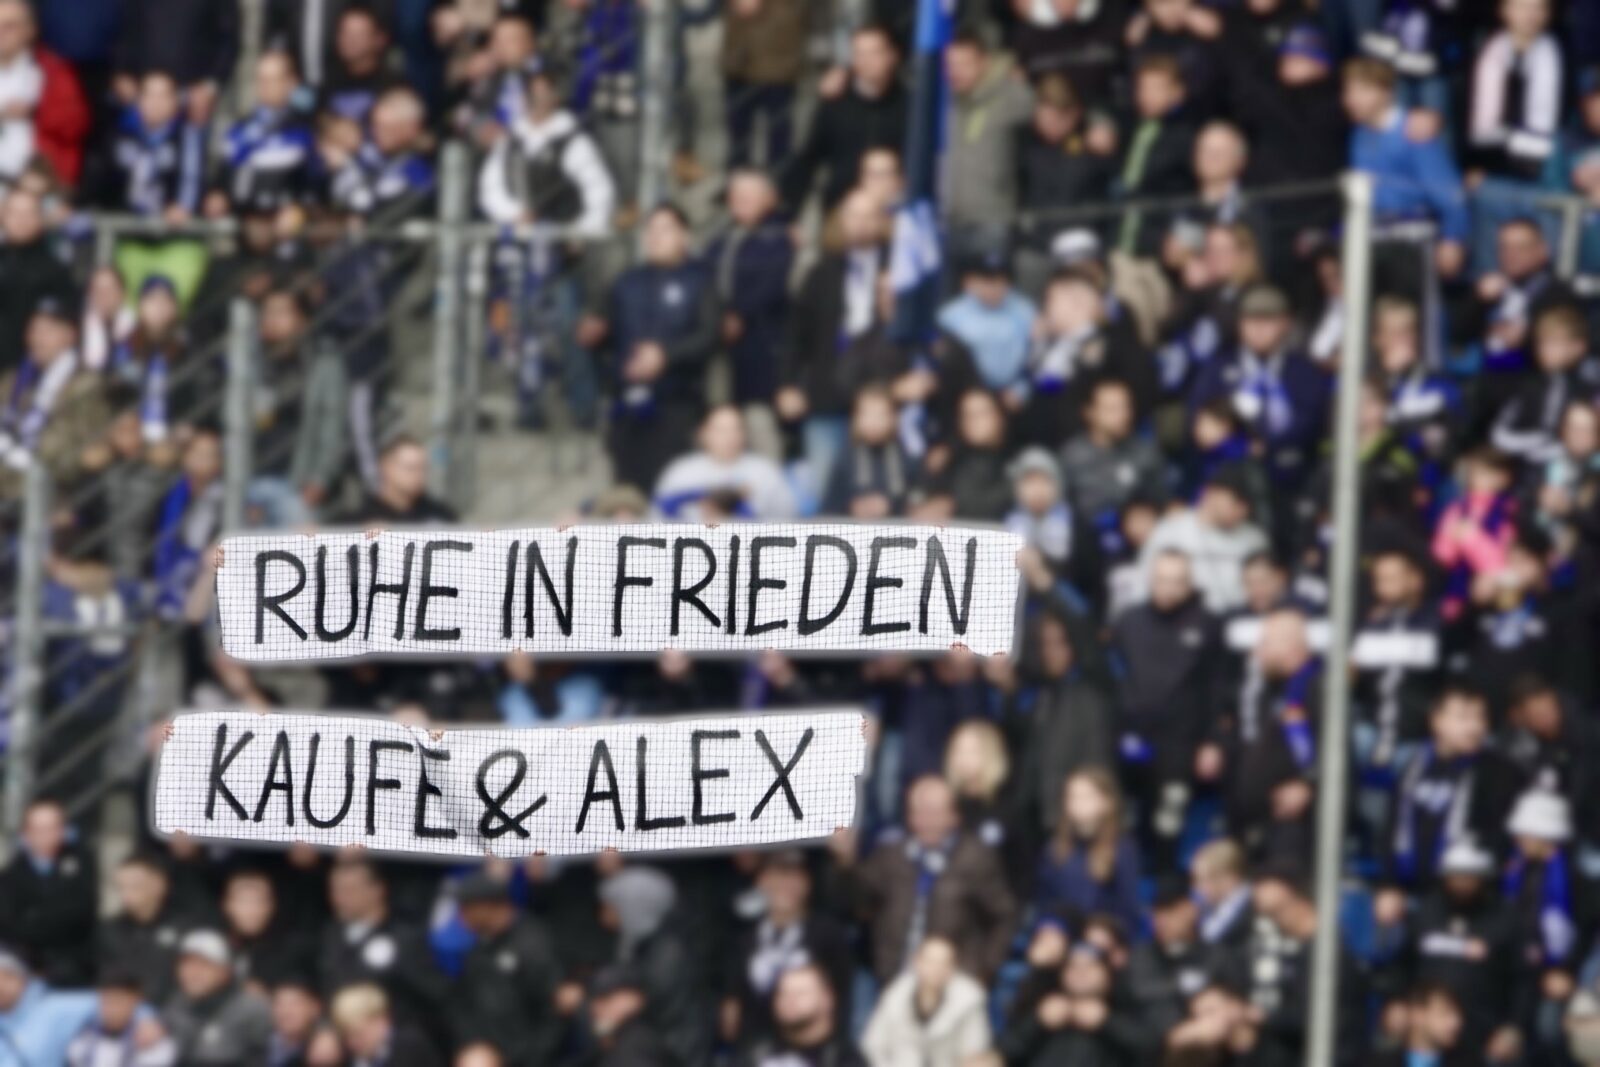 RUHE IN FRIEDEN
KAUFE & ALEX